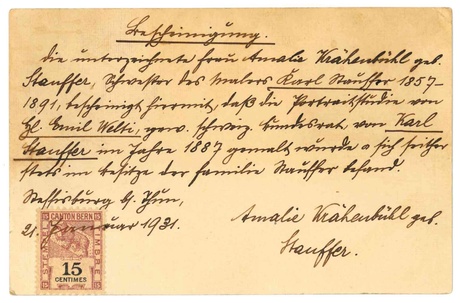 Bescheinigung.
Die unterzeichnete Frau Amalie Krähenbühl geb.
Stauffer, Schwester des Malers Karl Stauffer 1857-
1891, bescheinigt hiermit, daß die Portraitstudie von
Hl. Emil Welti, gew. schweiz. Bundesrat von Karl
Stauffer im Jahre 1887 gemalt wurde & sich seither
stets im Besitze der Familie Stauffer befand.
Steffisburg b. Thun,
21. Januar 1931.
Amalie Krähenbühl geb.
Stauffer.
CANTON BERN
STEMPEL
TIMBRE
15
CENTIMES